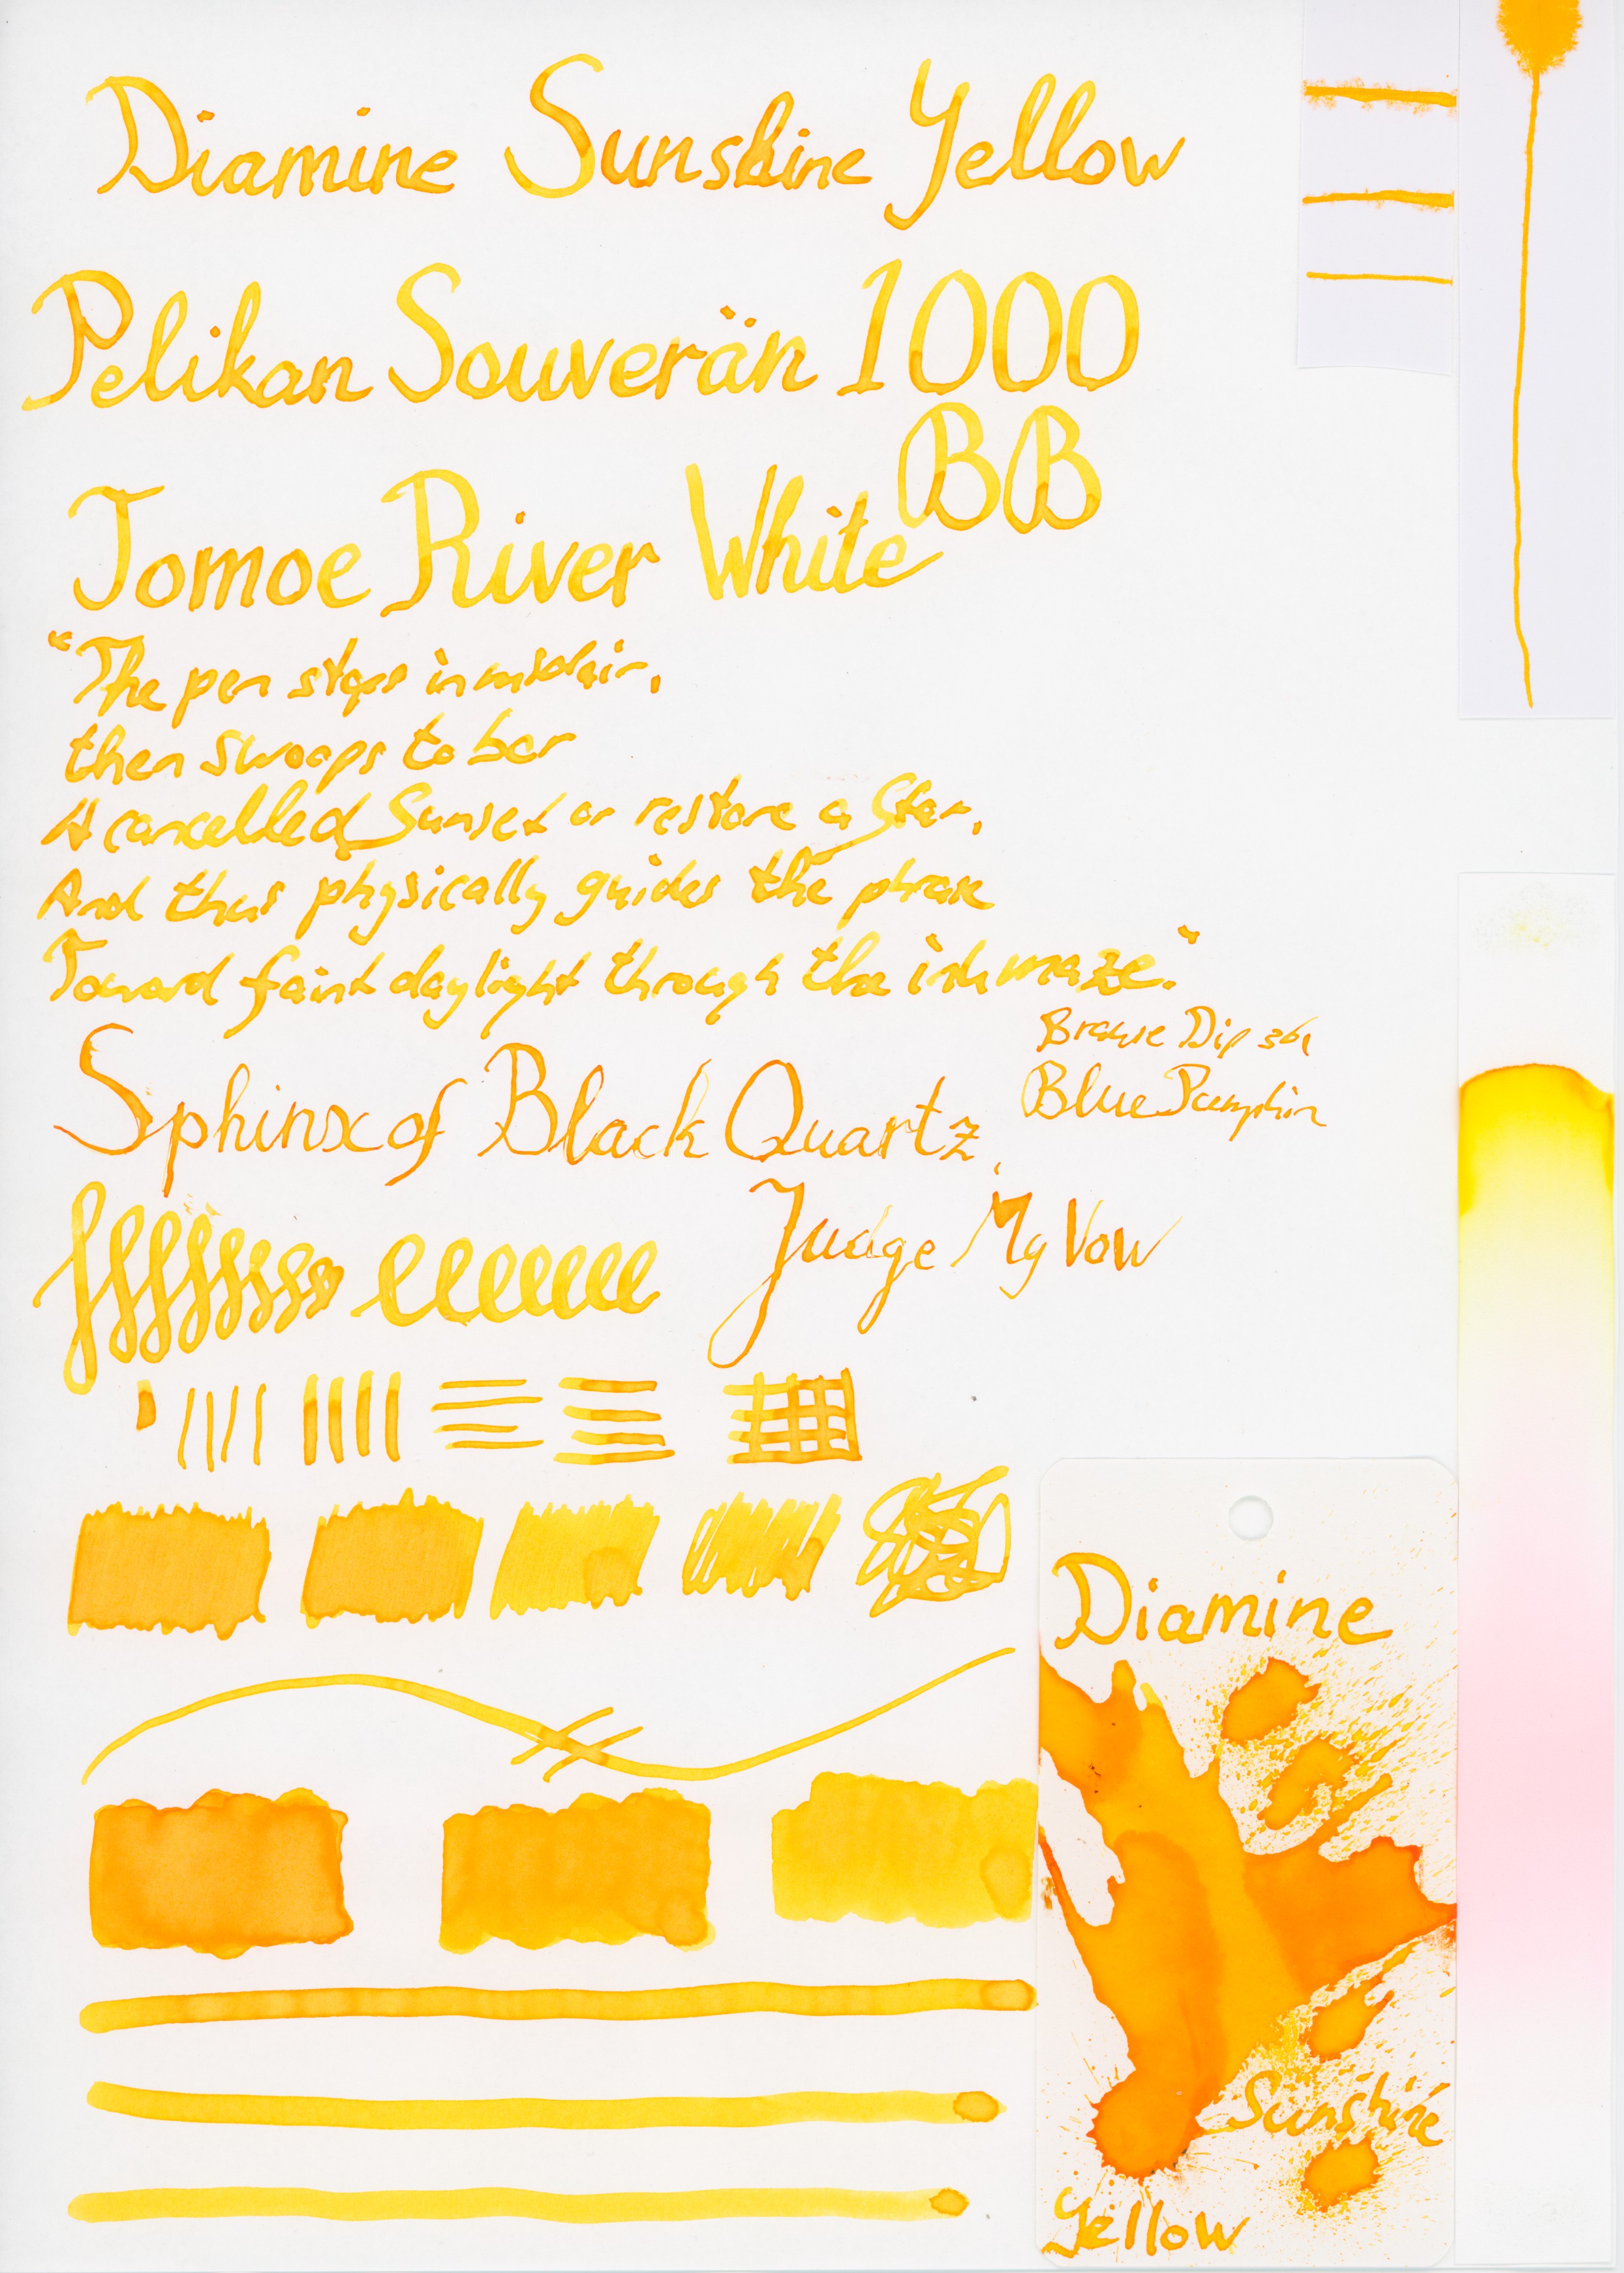 Diamine Sunshine Yellow
Pelikan Souverän 1000
BB
Tomoe River White
"The pen stops in midair,
then swoops to bar
A cancelled Sunset or restore a Star,
And thus physically guides the phrase
Toward faint daylight through the ink maze."
Brause Dip 361
Blue Pumpkin
Sphinx of Black Quartz,
Judge My Vow
Diamine
Sunshine
Yellow